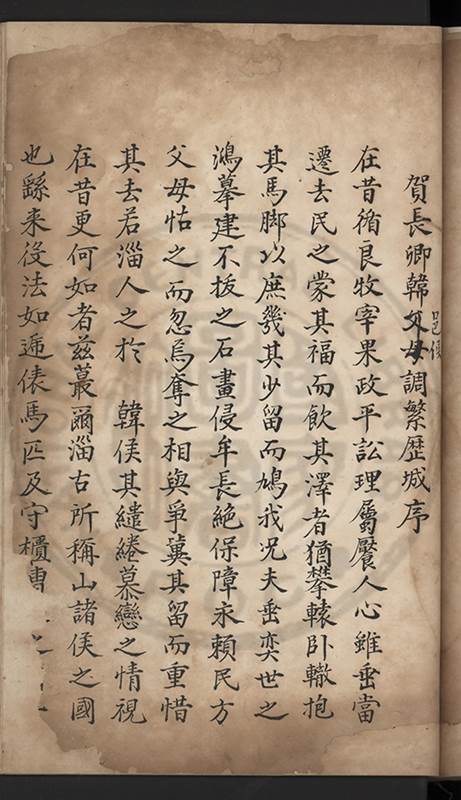 賀長卿韓父母調繁歷城序
邑侯
在昔循良牧宰果政平訟理屬饜人心雖垂當
遷去民之蒙其福而飲其澤者猶攀轅卧轍抱
其馬脚以庶幾其少留而鳩我况夫垂奕世之
鴻摹建不拔之石畫侵牟長絶保障永賴民方
父母怙之而忽焉奪之相與爭冀其留而重惜
其去若淄人之於 韓侯其繾綣慕戀之情視
在昔更何如者兹蕞爾淄古所稱山諸侯之國
也繇来役法如逓俵馬匹及守櫃專